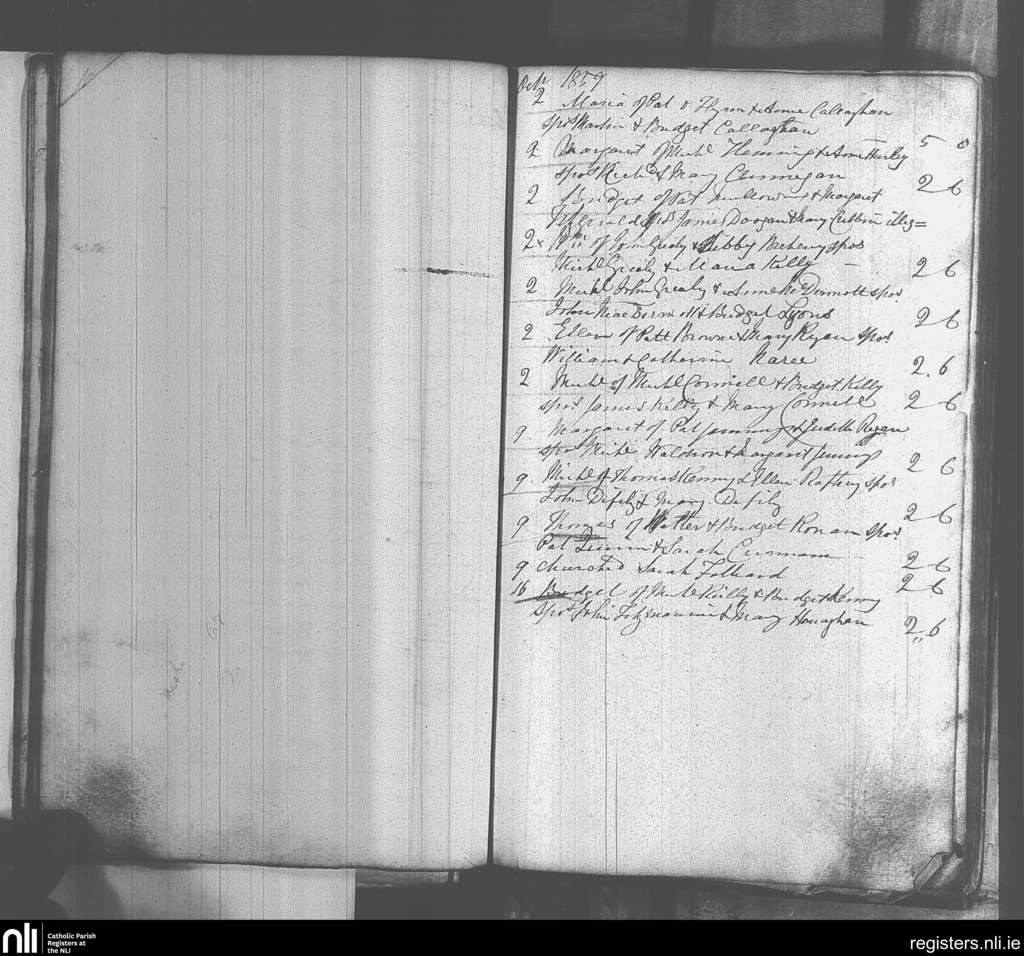 Octr 1859
2 Maria of Pat O Flynn & Anne Callaghan
spos Martin & Bridget Callaghan 5 0
9 Margaret of Michl Flemming & Anne Hurley
spos Richd & Mary Clennegan 2 6
2 Bridget of Pat & Margaret
Fitzgerald spos James Doogan & Mary illeg=
2 Wm of John Grealy & Libby spos
Michl Grealy & Maria Kelly – 2 6
2 Michl John Grealy & Anne McDermott spos
John MacDermott & Bridget Lyons 2 6
2 Ellen of Patt Browne & Mary Ryan spos
William & Catherine Karee 2.6
2 Michl of Michl Connell & Bridget Killy
spos James Kelly & Mary Connell 2 6
9 Margaret of Pat Jenning & Judith Ryan
spos Michl Waldron & Margaret Jenning 2 6
9 Michl of Thomas Kenny & Ellen Raftery spos
John Defily & Mary Defily 2 6
9 Thomas of Walter & Bridget Ronan spos
Pat Quinn & Sarah 2 6
9 Churched Sarah Follard 2 6
16 Bridget of Michl Reilly & Bridget Kenny
spos John Fitzmaurice & Mary Hanaghan 2,,6
nli
Catholic Parish
Registers at
the NLI
registers.nli.ie